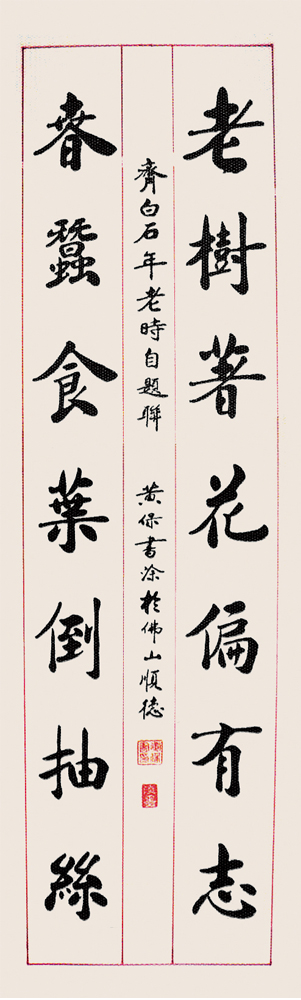 老樹著花偏有志
齊白石年老時自題聯 黄保書涂於佛山順德
春蠶食葉倒抽絲